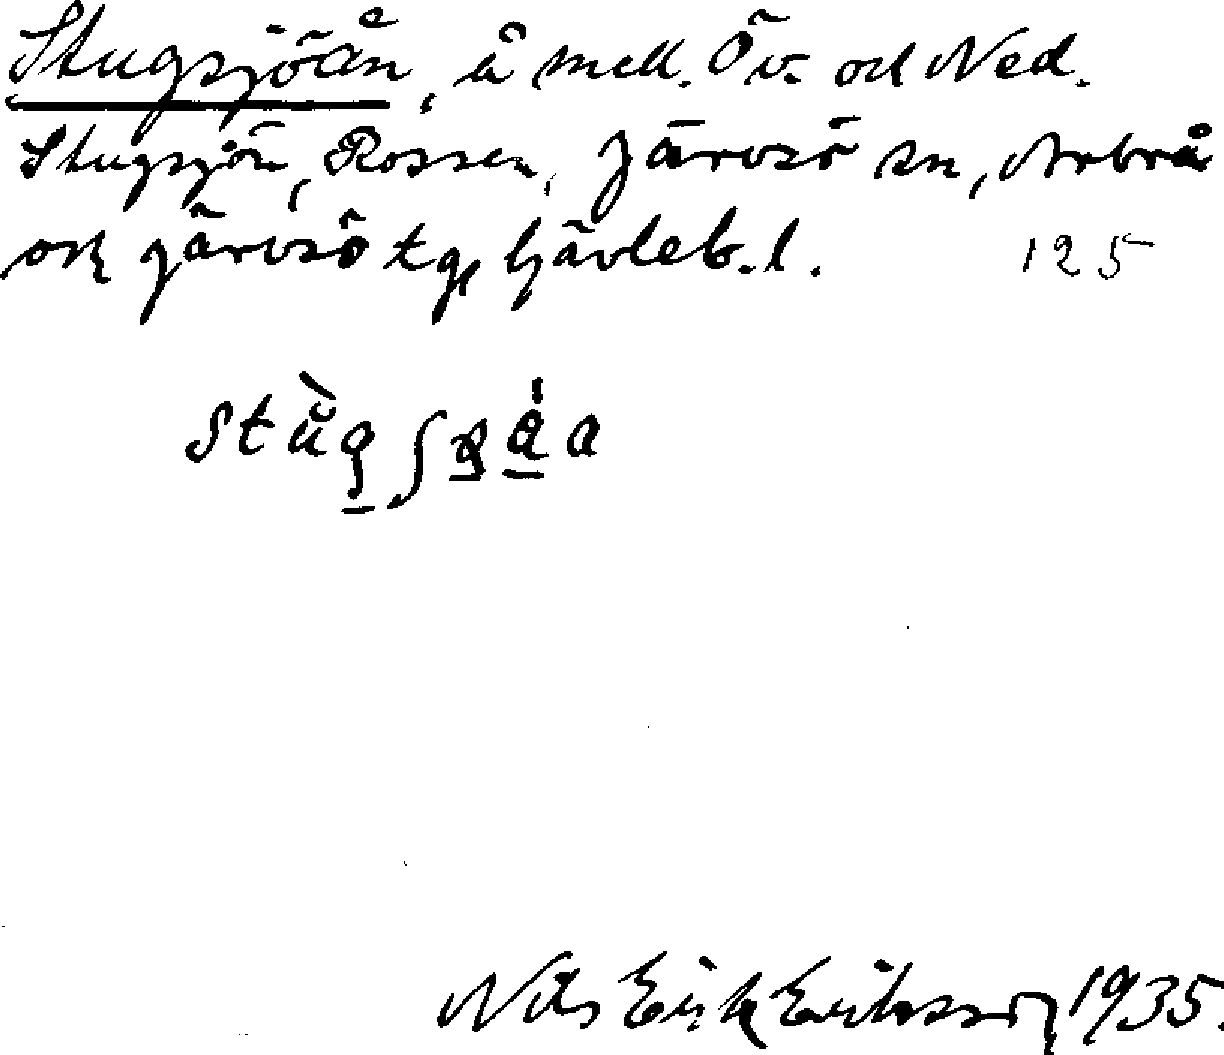 Stugsjöån, å mell. Öv. och Ned.
Stugsjön, Rossen, Järvsö sn, Arbrå
och Järvsö tg, Gävleb. l. 125
Nils Erik Eriksson 1935.